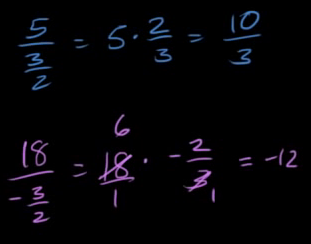 5/(3/2) = 5 · 2/3 = 10/3
18/(-3/2) = 6 18/1 · -2/3 1 = -12